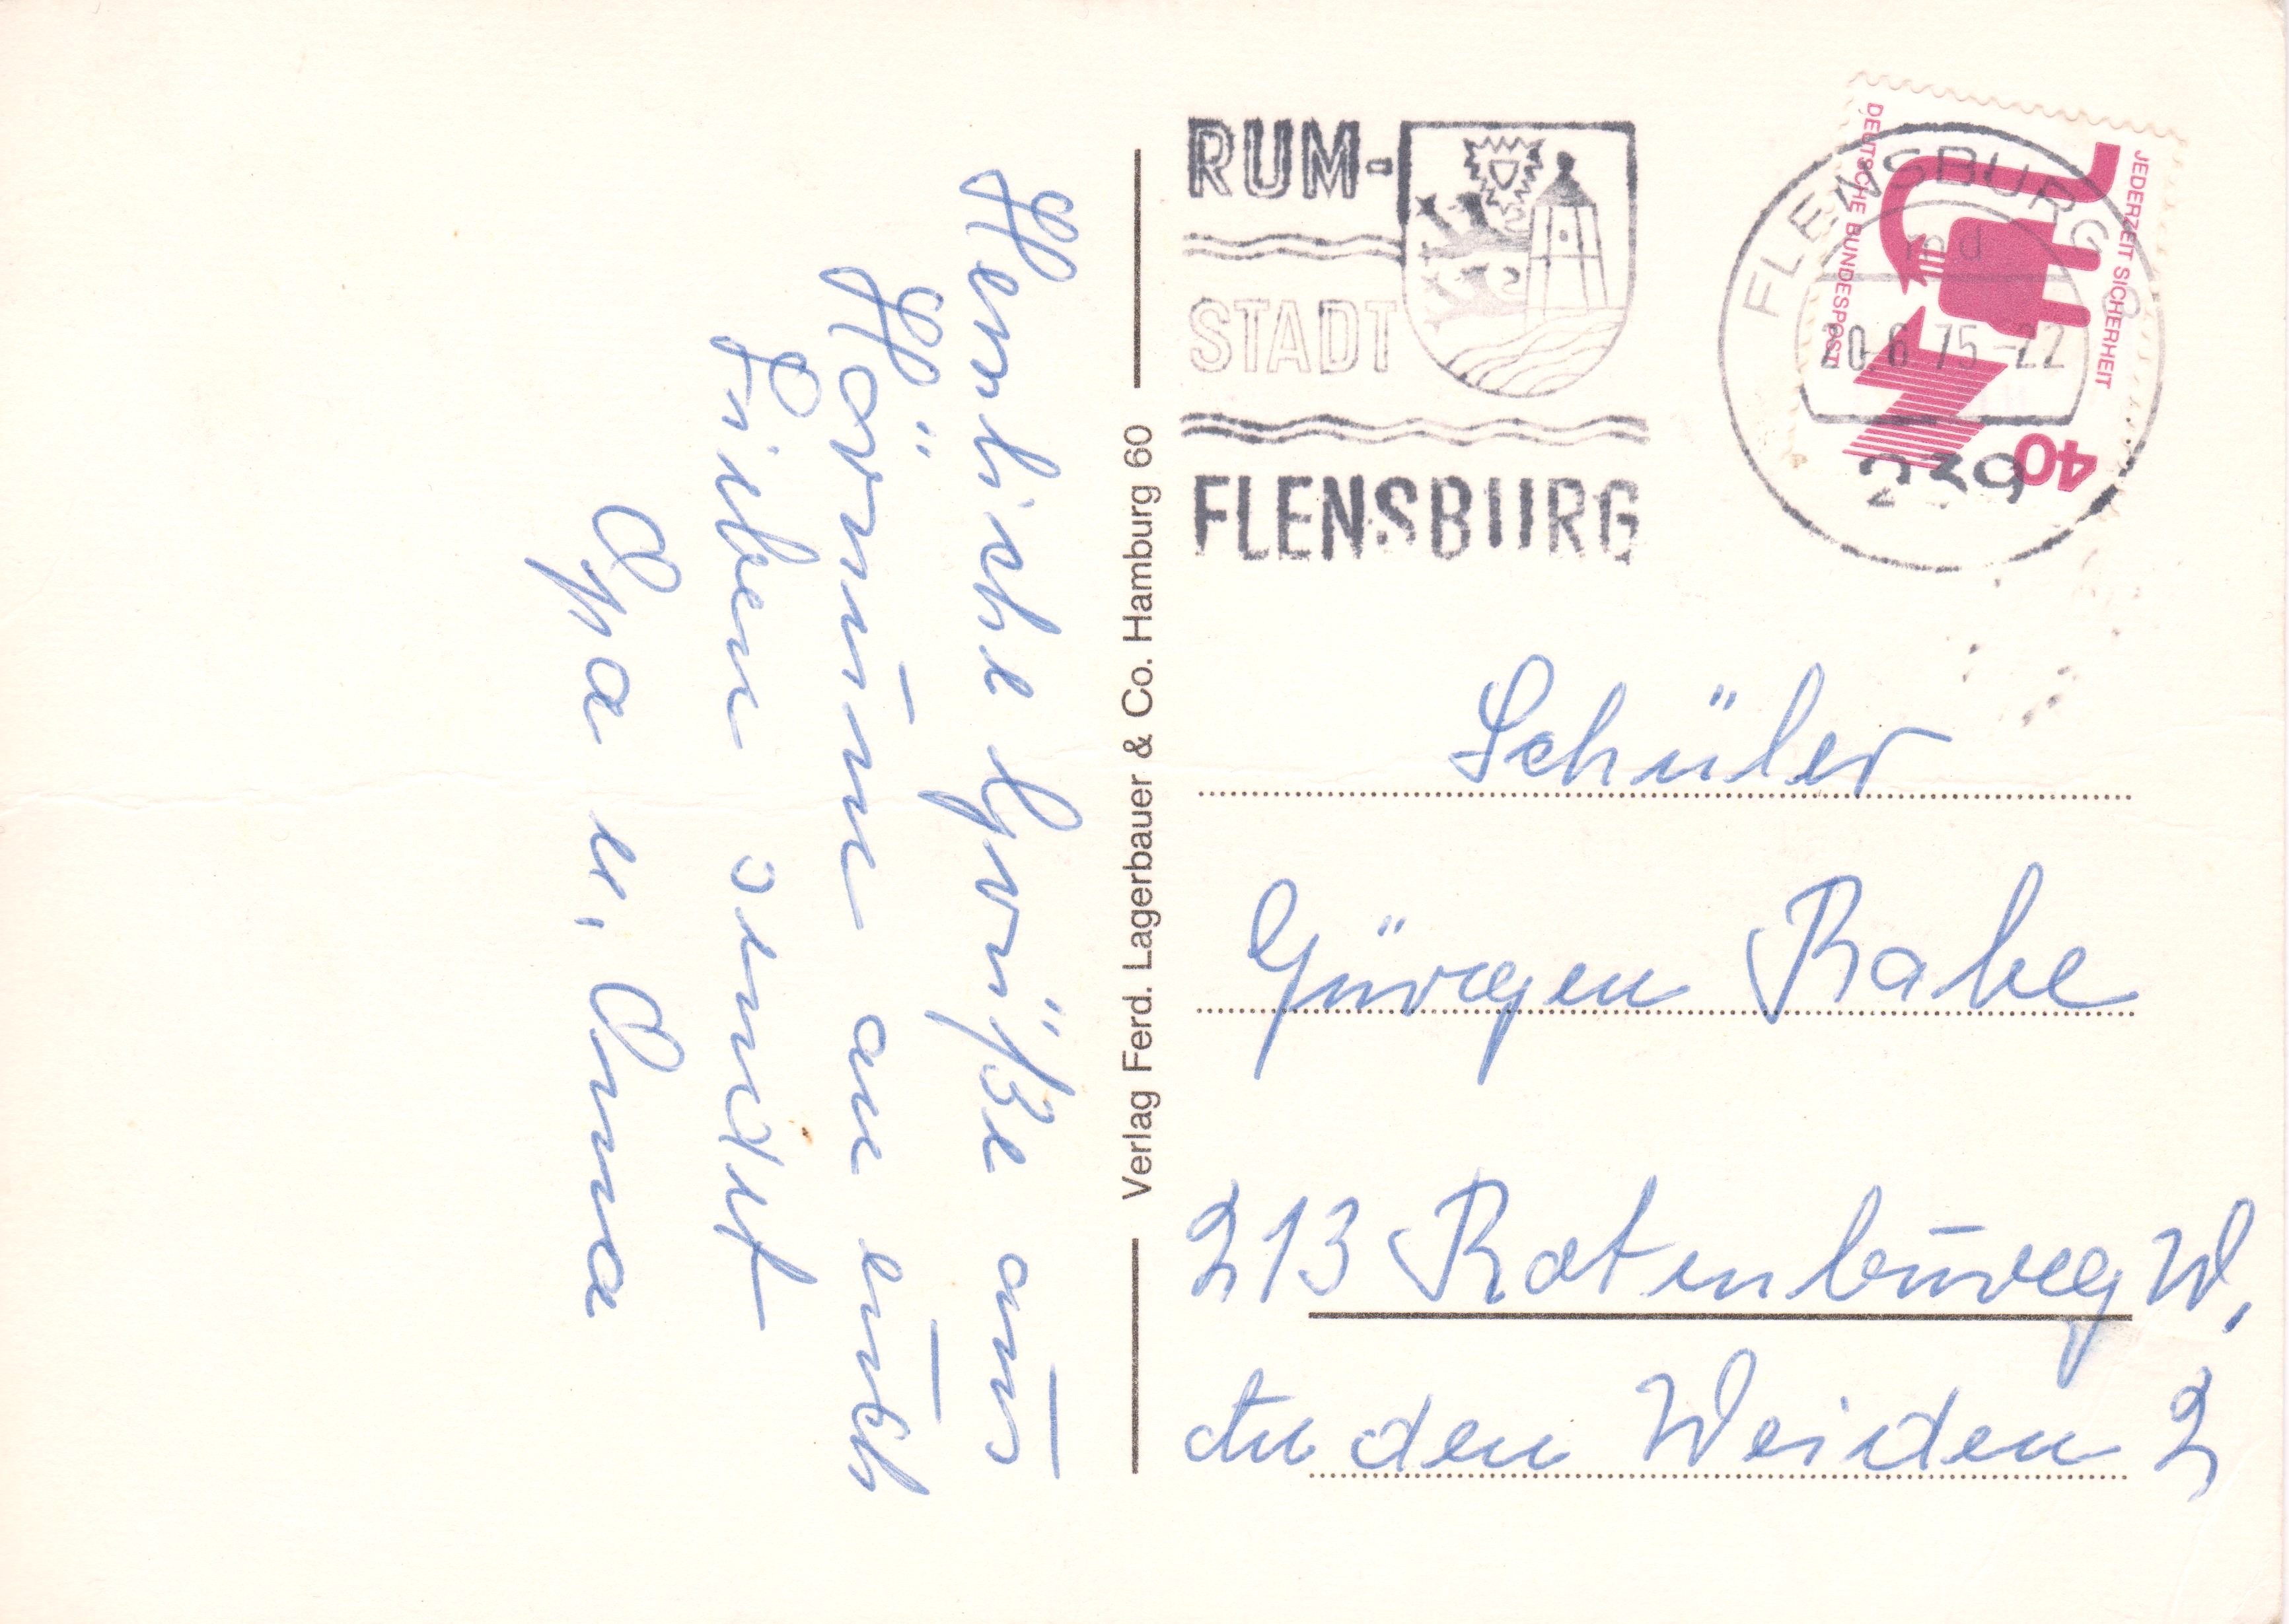 Herzliche Grüße aus
Hörnum an euch
Lieben sendet
Opa u. Oma
Verlag Ferd. Lagerbauer & Co. Hamburg 60
RUM-
STADT
FLENSBURG
FLENSBURG
20.6.75-22
239
DEUTSCHE BUNDESPOST
JEDERZEIT SICHERHEIT
40
Schüler
Jürgen Rabe
213 Rotenburg W.
An den Weiden 2